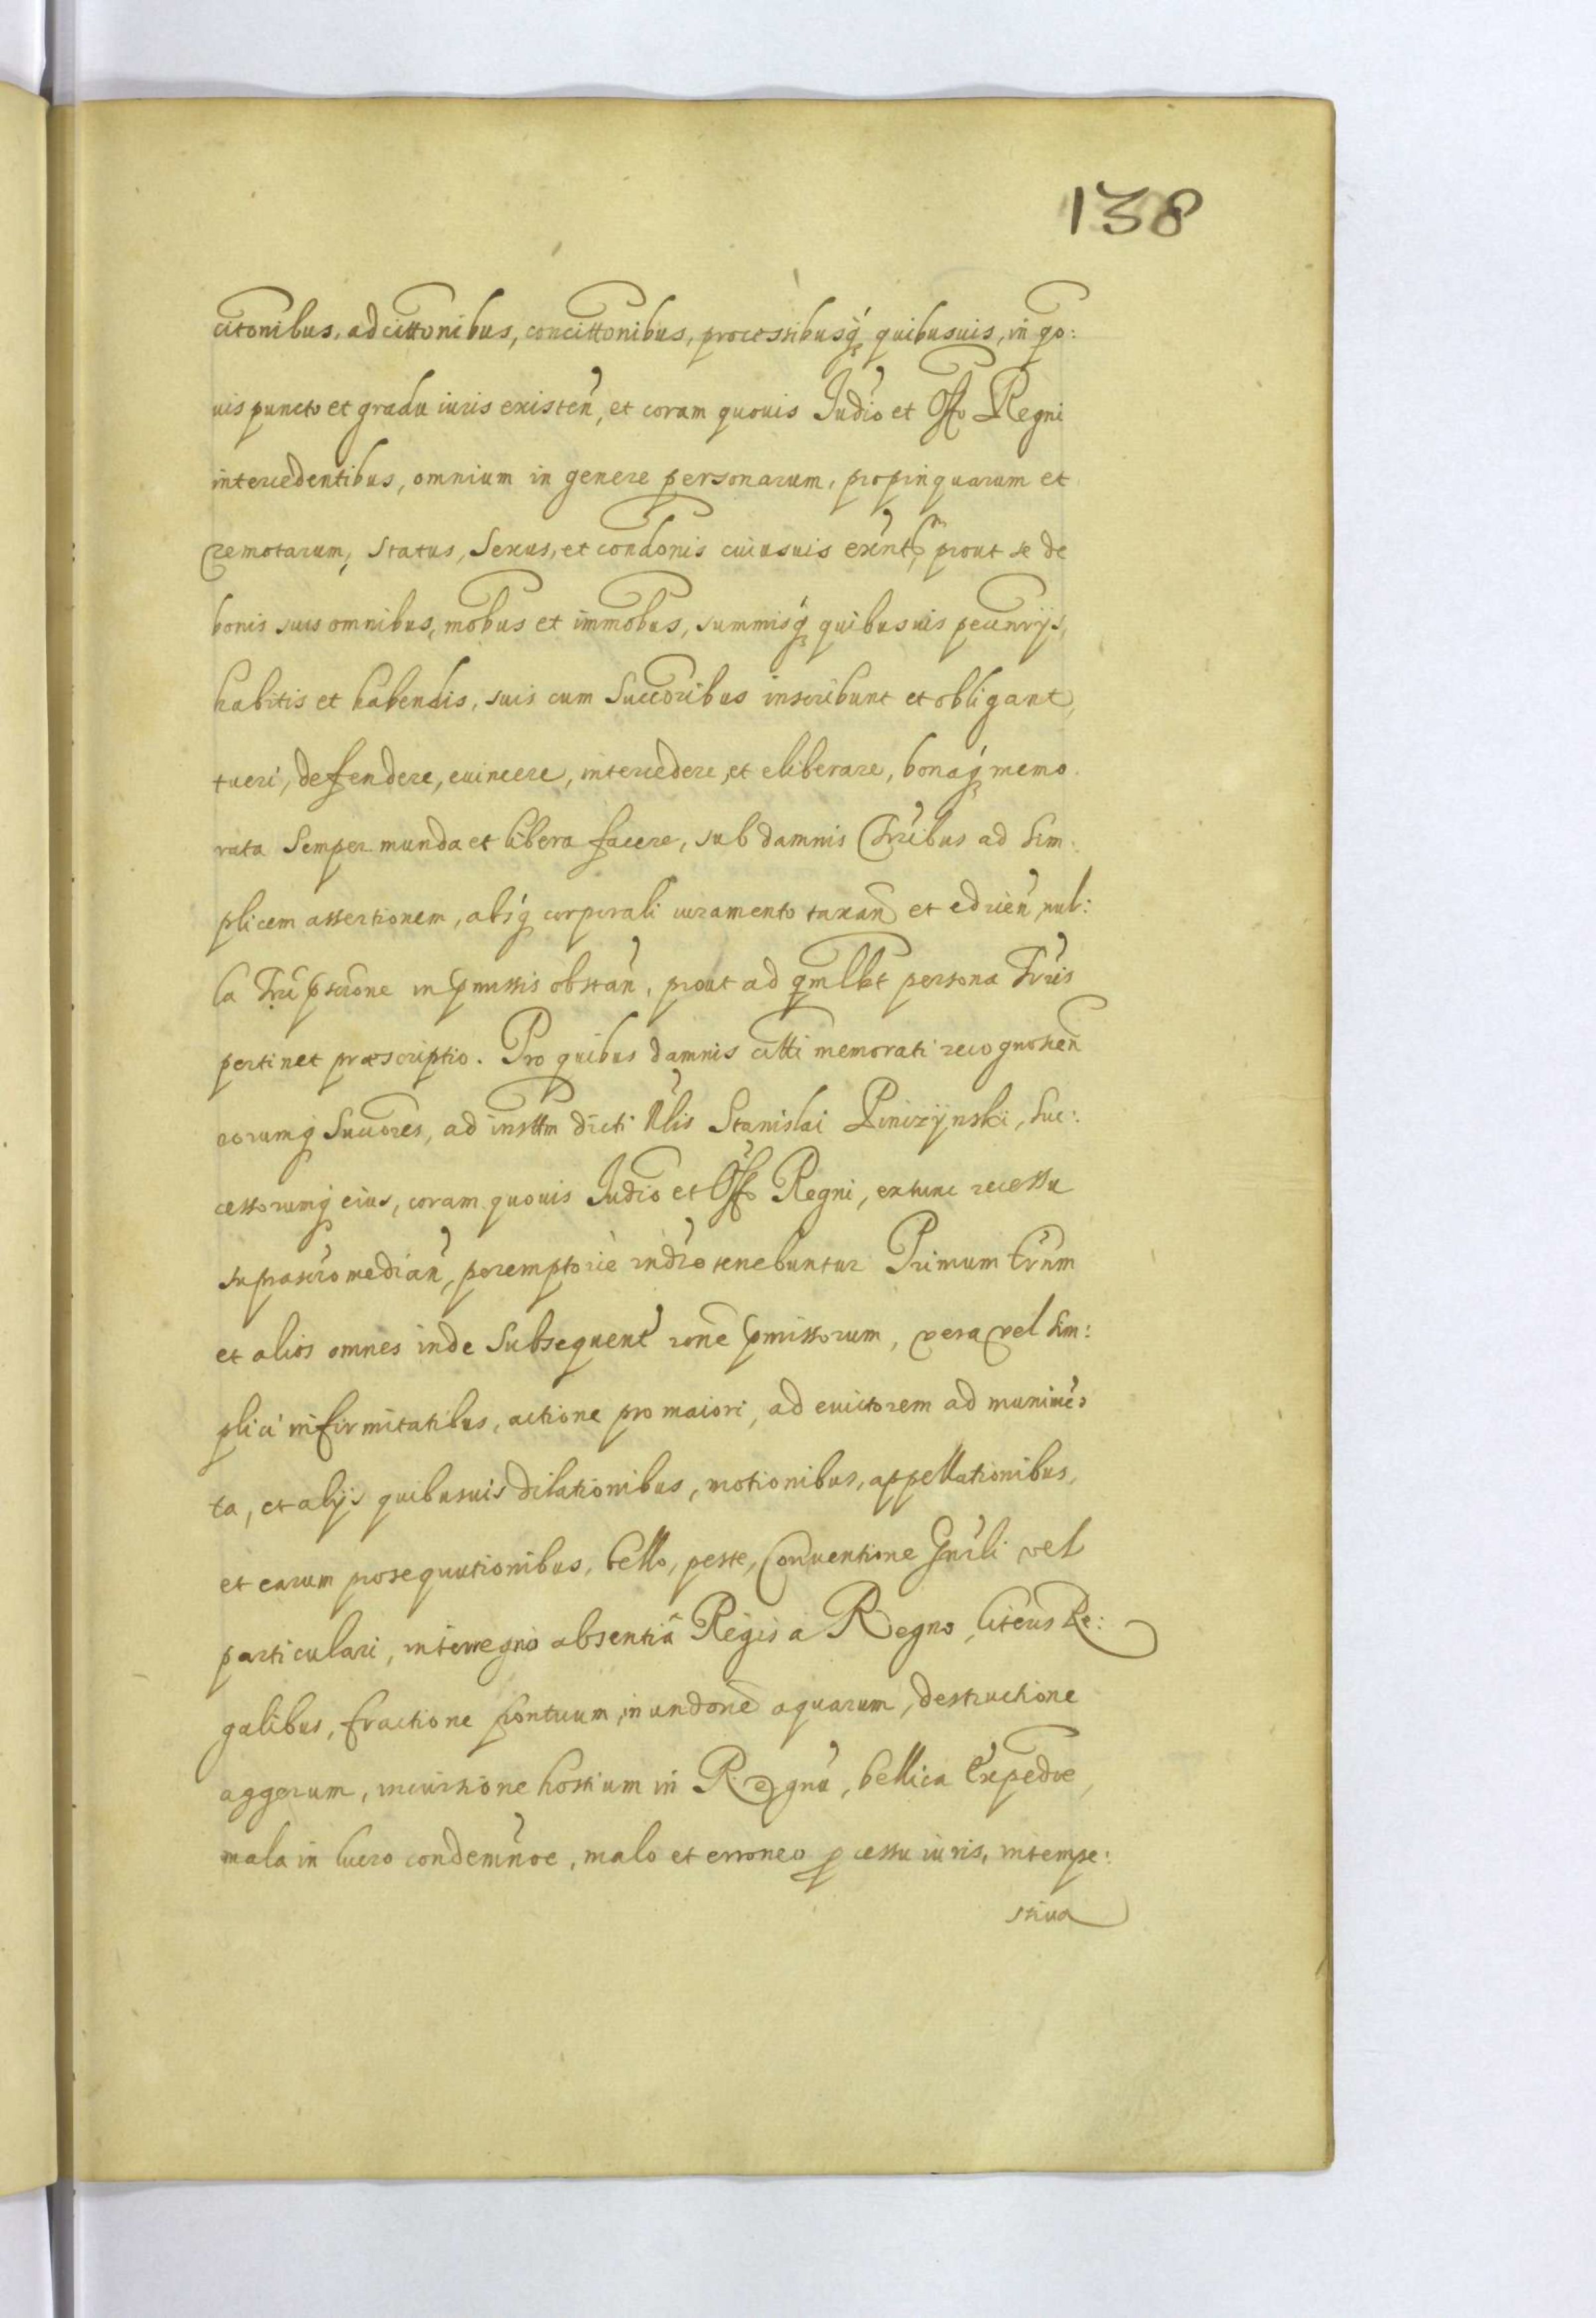 138
citonibus, adcittonibus, concittonibus, processibusq́ȝ quibusuis, in qo:
uis puncto et gradu iuris existen̄, et coram quouis Judio et Offo Regni
intercedentibus, omnium in genere personarum, propinquarum et
remotarum, status, sexus, et condonis cuiusuis prout se de
bonis suis omnibus, mobus et immobus, summisq́ȝ quibusuis pecunrijs,
habitis et habendis, suis cum Succoribus inscribunt et obligant,
tueri, defendere, euincere, intercedere, et eliberare, bonaq́ȝ memo
rata semper munda et libera facere, sub damnis Trribus ad sim:
plicem assertionem, absq́ȝ corporali iuramento taxan̄ et edicen̄, nul:
la Trri pscrione in pmissis obstan̄, prout ad qmlbt persona Trris
pertinet præscriptio. Pro quibus damnis citti memorati recognoscen̄
eorumq́ȝ Succores, ad insttm dicti Nlis Stanislai Pinizÿnski, suc:
cessorumq́ȝ eius, coram quouis Judio et Offo Regni, extunc recessu
suprascrō median̄, peremptorie rndre tenebuntur Primum Trnm
et alios omnes inde subsequent̄ rone pmissorum, vera vel sim:
plici infirmitatibus, actione pro maiori, ad euictorem ad munimēn
ta, et alijs quibusuis dilationibus, motionibus, appellationibus,
et earum prosequutionibus, bello, peste, Conuentione Gnrli vel
particulari, interregno absentiâ Regis a Regno, literis Re:
galibus, fractione pontuum, inundone aquarum, destructione
aggerum, incursione hostium in Regnū, bellica Expedre,
mala in lucro condemnoe, malo et erroneo pcessu iuris, intempe:
stiua